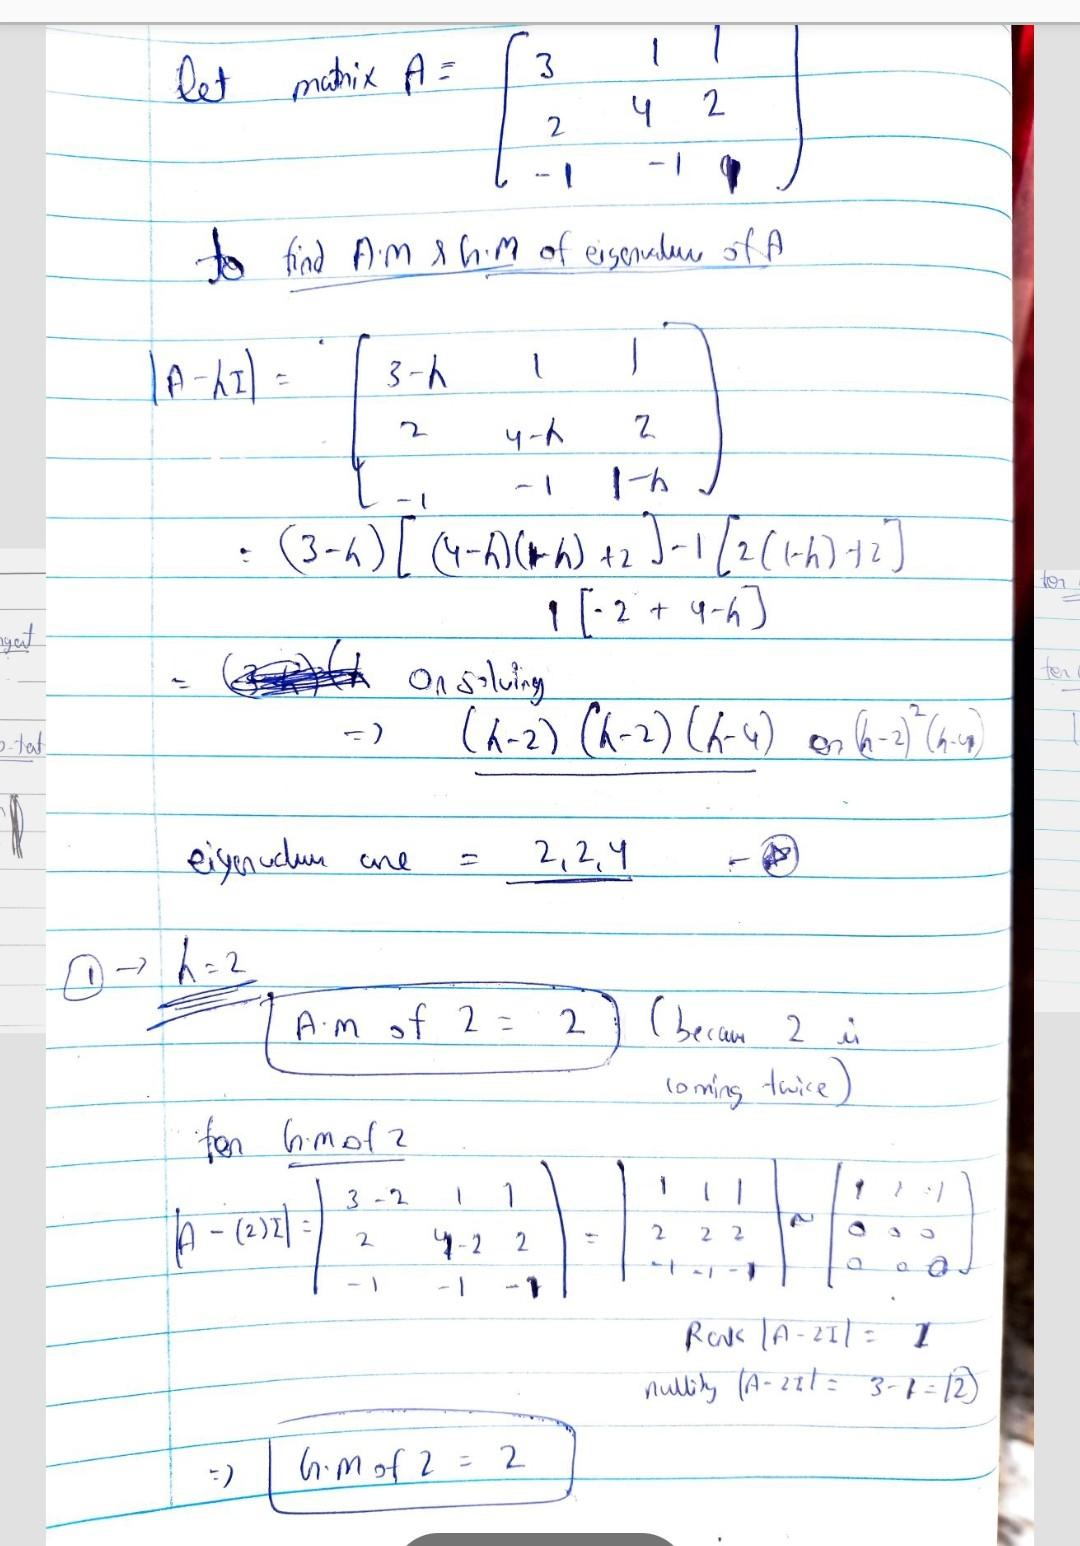 let matrix A = [ 3 1 1
2 4 2
-1 -1 1 ]
to find A.M & G.M of eigenvalue of A
|A-λI| = [ 3-λ 1 1
2 4-λ 2
-1 -1 1-λ ]
= (3-λ)[ (4-λ)(1-λ) +2 ] -1 [2(1-λ)+2]
1 [-2 + 4-λ]
= On solving
=> (λ-2) (λ-2) (λ-4) or (λ-2)²(λ-4)
eigenvalues are = 2,2,4 -
① → λ=2
A.M of 2 = 2 (becaus 2 is
coming twice)
for G.M of 2
|A-(2)I| = | 3-2 1 1 | = | 1 1 1 | ~ [ 1 1 1
2 4-2 2 2 2 2 0 0 0
-1 -1 -1 -1 -1 -1 0 0 0 ]
Rank |A-2I| = 1
nullity |A-2I| = 3-1=2
=> G.M of 2 = 2
for
for